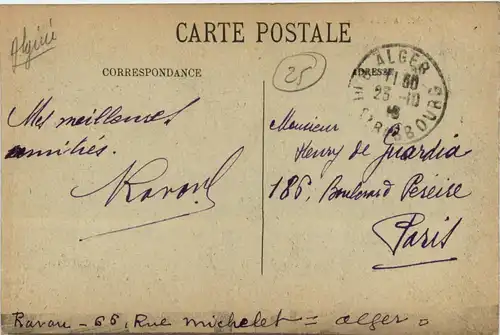 Algérie
CARTE POSTALE
25
CORRESPONDANCE
ADRESSE
ALGER
11 30
23-10
STRASBOURG
Mes meilleures
amitiés.
Ravan
Monsieur
Henry de Guardia
186, Boulevard Péreire
Paris
Ravan - 66, Rue Michelet = Alger =